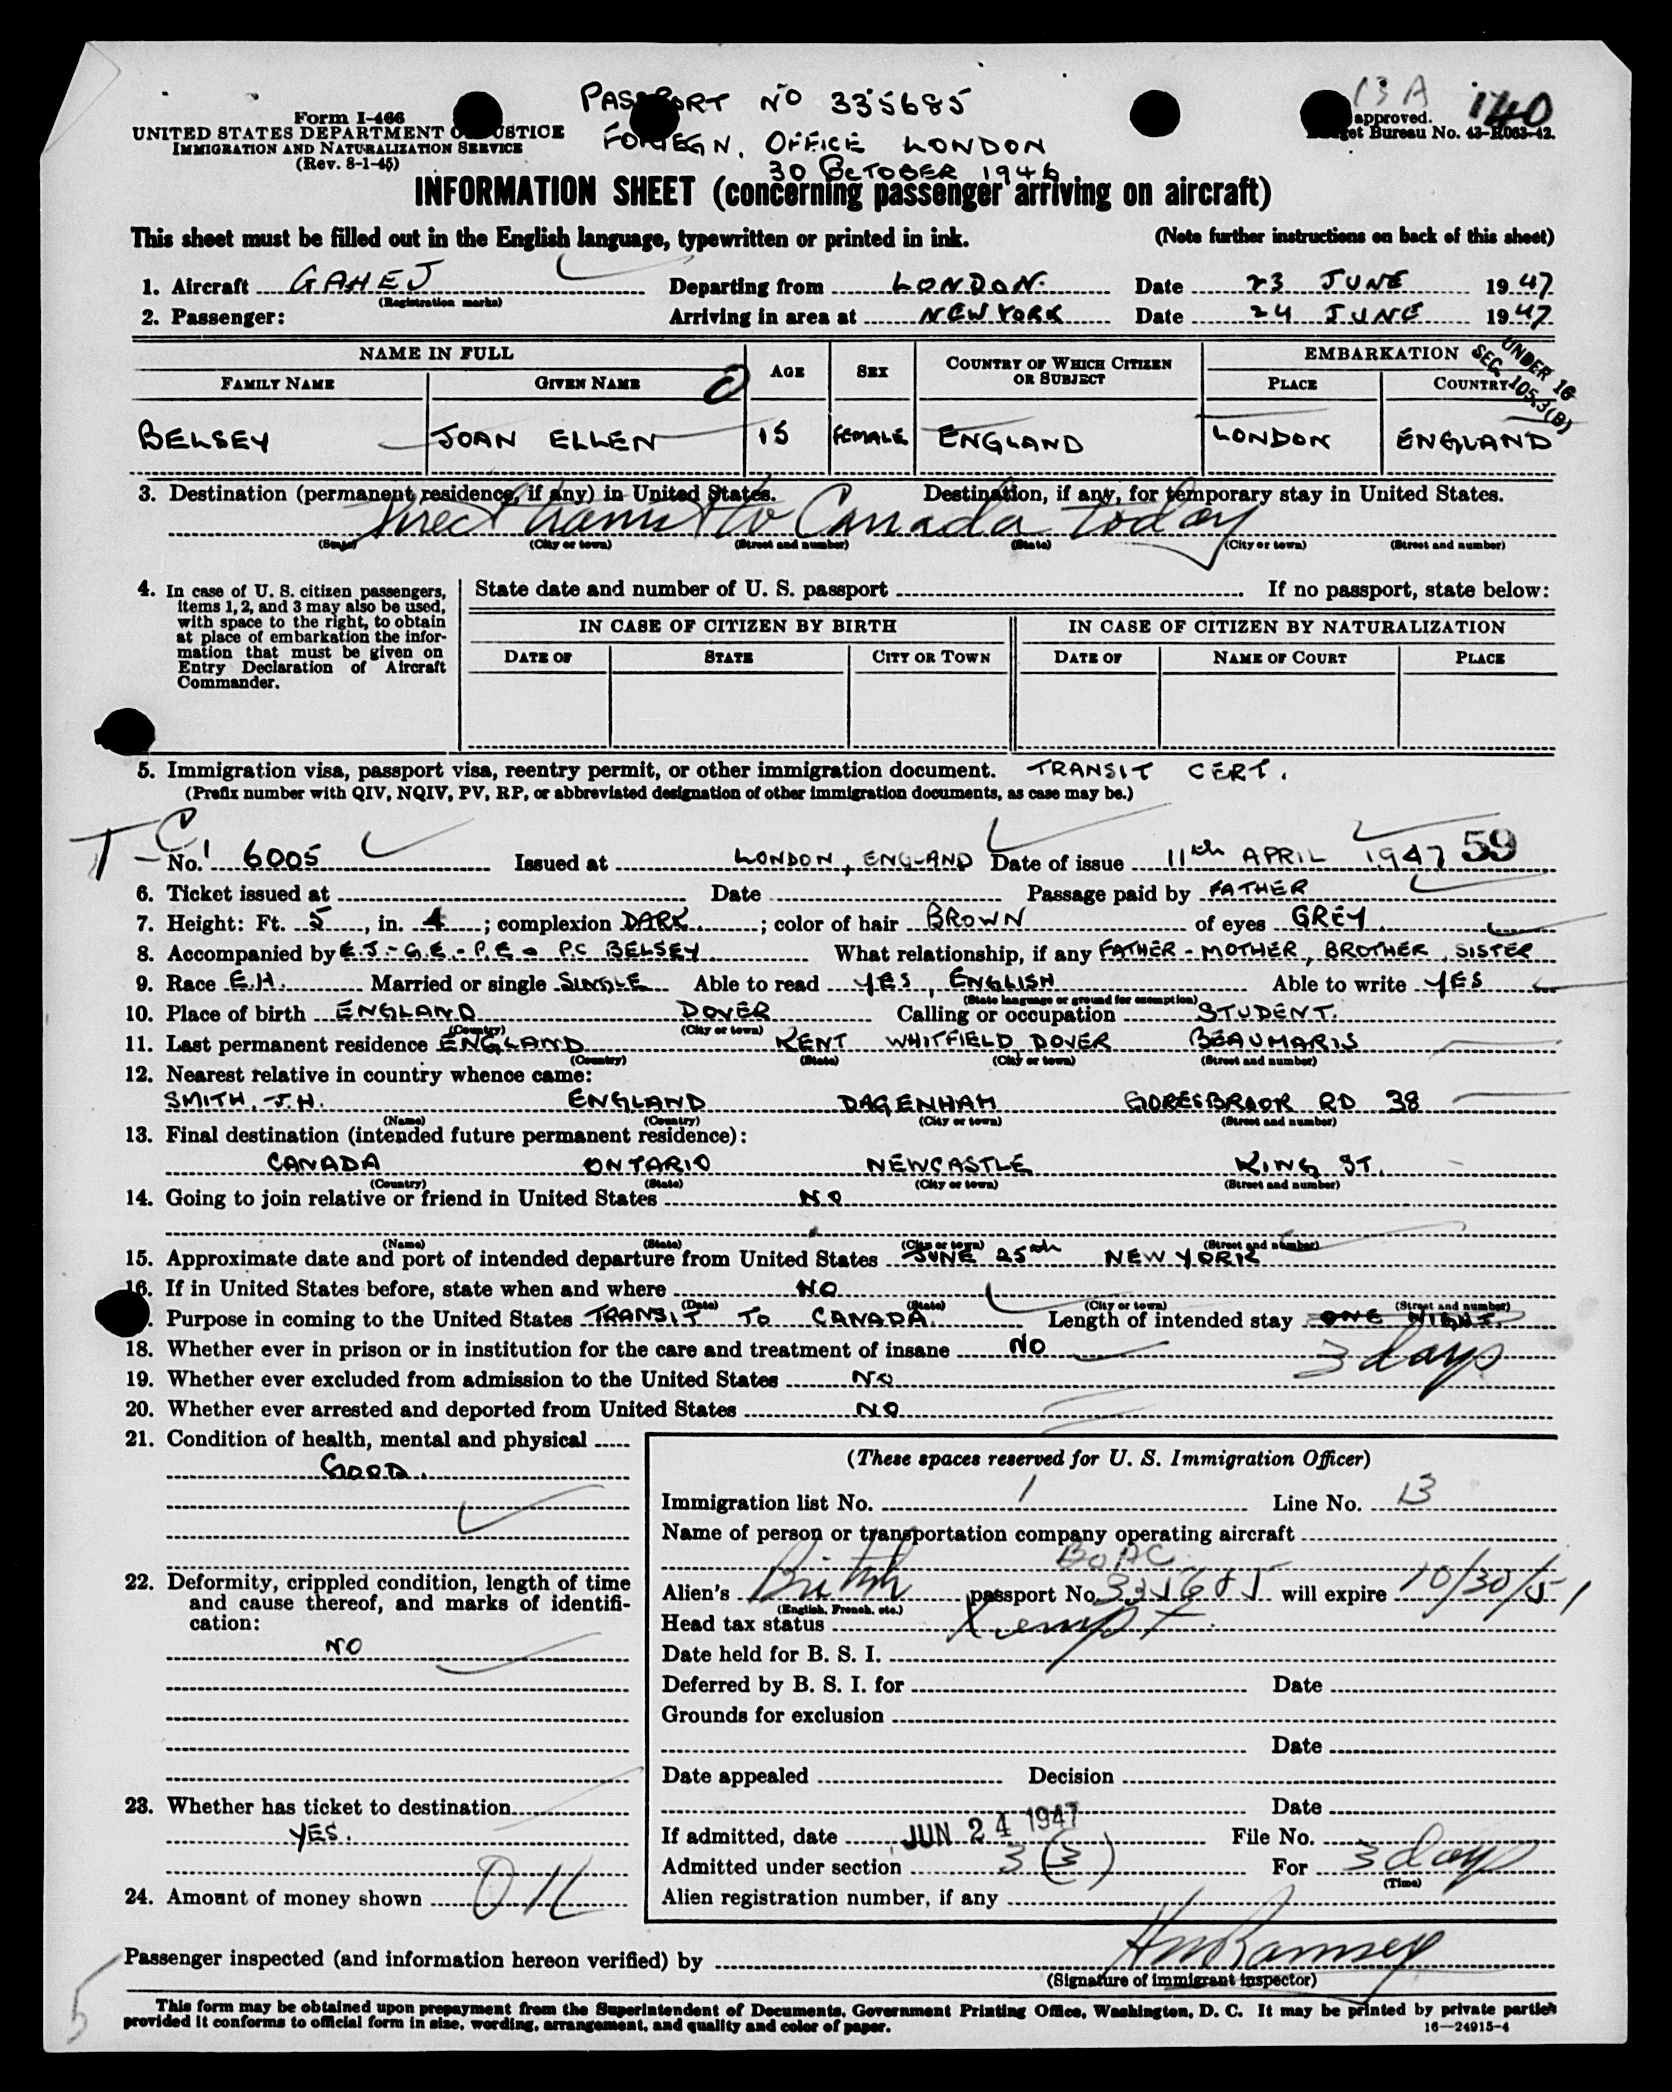 13A 140
PASSPORT No 335685
FOREIGN. OFFICE LONDON
30 OCTOBER 1946
Form I-466
UNITED STATES DEPARTMENT OF JUSTICE
IMMIGRATION AND NATURALIZATION SERVICE
(Rev. 8-1-45)
approved.
Budget Bureau No. 43-R063-42.
INFORMATION SHEET (concerning passenger arriving on aircraft)
This sheet must be filled out in the English language, typewritten or printed in ink. (Note further instructions on back of this sheet)
1. Aircraft GAHEJ Departing from LONDON. Date 23 JUNE 1947
(Registration marks)
2. Passenger: Arriving in area at NEW YORK Date 24 JUNE 1947
NAME IN FULL AGE SEX COUNTRY OF WHICH CITIZEN OR SUBJECT EMBARKATION
FAMILY NAME GIVEN NAME PLACE COUNTRY
UNDER 16
SEC. 105.3(B)
BELSEY JOAN ELLEN 15 FEMALE ENGLAND LONDON ENGLAND
3. Destination (permanent residence, if any) in United States. Destination, if any, for temporary stay in United States.
Direct transit to Canada today
(State) (City or town) (Street and number) (State) (City or town) (Street and number)
4. In case of U. S. citizen passengers, items 1, 2, and 3 may also be used, with space to the right, to obtain at place of embarkation the information that must be given on Entry Declaration of Aircraft Commander.
State date and number of U. S. passport If no passport, state below:
IN CASE OF CITIZEN BY BIRTH IN CASE OF CITIZEN BY NATURALIZATION
DATE OF STATE CITY OR TOWN DATE OF NAME OF COURT PLACE
5. Immigration visa, passport visa, reentry permit, or other immigration document. TRANSIT CERT.
(Prefix number with QIV, NQIV, PV, RP, or abbreviated designation of other immigration documents, as case may be.)
TC
No. 6005 Issued at LONDON, ENGLAND Date of issue 11th APRIL 1947 59
6. Ticket issued at Date Passage paid by FATHER
7. Height: Ft. 5, in. 4; complexion DARK; color of hair BROWN of eyes GREY
8. Accompanied by E.J.- G.E.- P.E & P.C BELSEY What relationship, if any FATHER - MOTHER, BROTHER, SISTER
9. Race E.H. Married or single SINGLE Able to read YES, ENGLISH Able to write YES
(State language or ground for exemption)
10. Place of birth ENGLAND DOVER Calling or occupation STUDENT.
(Country) (City or town)
11. Last permanent residence ENGLAND KENT WHITFIELD DOVER BEAUMARIS
(Country) (State) (City or town) (Street and number)
12. Nearest relative in country whence came:
SMITH. J.H. ENGLAND DAGENHAM GORESBROOK RD 38
(Name) (Country) (City or town) (Street and number)
13. Final destination (intended future permanent residence):
CANADA ONTARIO NEWCASTLE KING ST.
(Country) (State) (City or town) (Street and number)
14. Going to join relative or friend in United States NO
(Name) (State) (City or town) (Street and number)
15. Approximate date and port of intended departure from United States JUNE 25th NEW YORK
16. If in United States before, state when and where NO
(Date) (State) (City or town) (Street and number)
Purpose in coming to the United States TRANSIT TO CANADA. Length of intended stay ONE NIGHT.
3 days
18. Whether ever in prison or in institution for the care and treatment of insane NO
19. Whether ever excluded from admission to the United States NO
20. Whether ever arrested and deported from United States NO
21. Condition of health, mental and physical
GOOD.
22. Deformity, crippled condition, length of time and cause thereof, and marks of identification:
NO
23. Whether has ticket to destination
YES.
24. Amount of money shown OK
(These spaces reserved for U. S. Immigration Officer)
Immigration list No. 1 Line No. 13
Name of person or transportation company operating aircraft
BOAC
Alien's British passport No. 335685 will expire 10/30/51
(English, French, etc.)
Head tax status Xempt
Date held for B. S. I.
Deferred by B. S. I. for Date
Grounds for exclusion
Date
Date appealed Decision
Date
If admitted, date JUN 24 1947 File No.
Admitted under section 3 (3) For 3 days
(Time)
Alien registration number, if any
Passenger inspected (and information hereon verified) by HW Ramsey
(Signature of immigrant inspector)
5
This form may be obtained upon prepayment from the Superintendent of Documents, Government Printing Office, Washington, D. C. It may be printed by private parties
provided it conforms to official form in size, wording, arrangement, and quality and color of paper. 16—24915-4